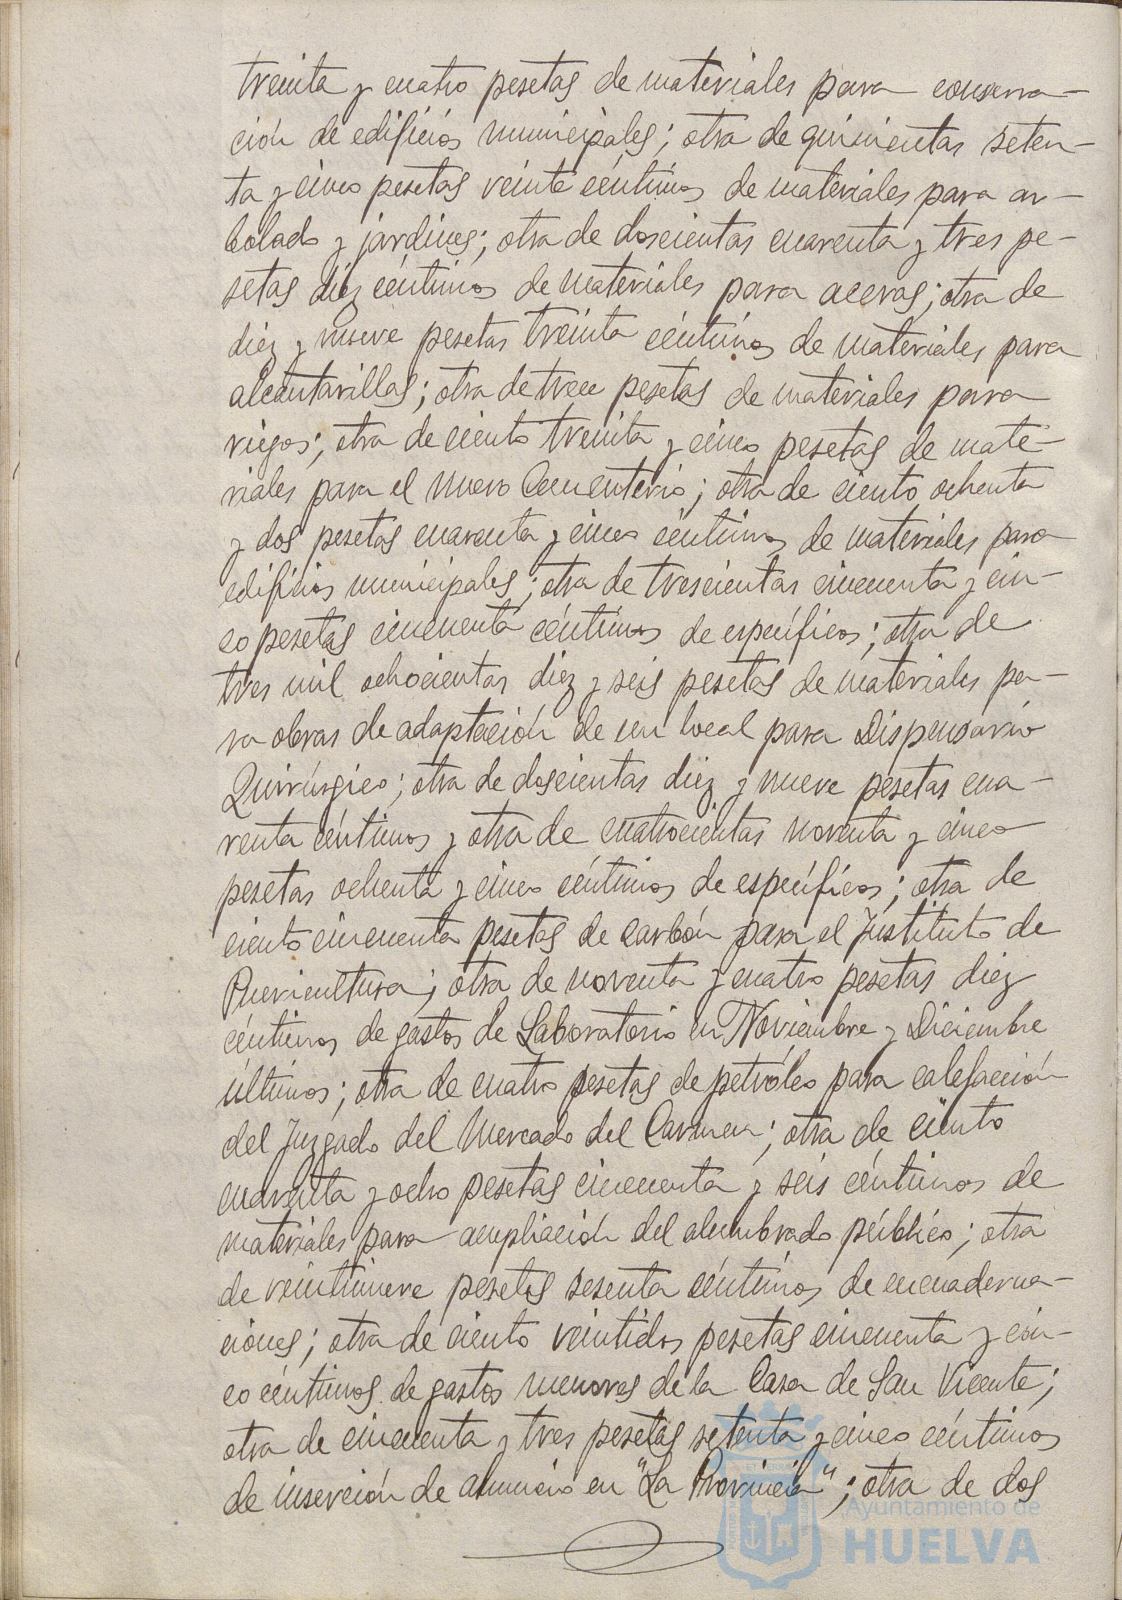 treinta y cuatro pesetas de materiales para conserva-
ción de edificios municipales; otra de quinientas seten-
ta y cinco pesetas veinte céntimos de materiales para ar-
bolado y jardines; otra de doscientas cuarenta y tres pe-
setas diez céntimos de materiales para aceras; otra de
diez y nueve pesetas treinta céntimos de materiales para
alcantarillas; otra de trece pesetas de materiales para
riegos; otra de ciento treinta y cinco pesetas de mate-
riales para el nuevo Cementerio; otra de ciento ochenta
y dos pesetas cuarenta y cinco céntimos de materiales para
edificios municipales; otra de trescientas cincuenta y cin-
co pesetas cincuenta céntimos de específicos; otra de
tres mil ochocientas diez y seis pesetas de materiales pa-
ra obras de adaptación de un local para Dispensario
Quirúrgico; otra de doscientas diez y nueve pesetas cua-
renta céntimos y otra de cuatrocientas noventa y cinco
pesetas ochenta y cinco céntimos de específicos; otra de
ciento cincuenta pesetas de carbón para el Instituto de
Puericultura; otra de noventa y cuatro pesetas diez
céntimos de gastos de Laboratorio en Noviembre y Diciembre
últimos; otra de cuatro pesetas de petróleo para calefacción
del Juzgado del Mercado del Carmen; otra de ciento
cuarenta y ocho pesetas cincuenta y seis céntimos de
materiales para ampliación del alumbrado público; otra
de veintinueve pesetas sesenta céntimos de encuaderna-
ciones; otra de ciento veintidos pesetas cincuenta y cin-
co céntimos de gastos menores de la Casa de San Vicente;
otra de cincuenta y tres pesetas setenta y cinco céntimos
de inserción de anuncio en "La Provincia"; otra de dos
Ayuntamiento de
HUELVA